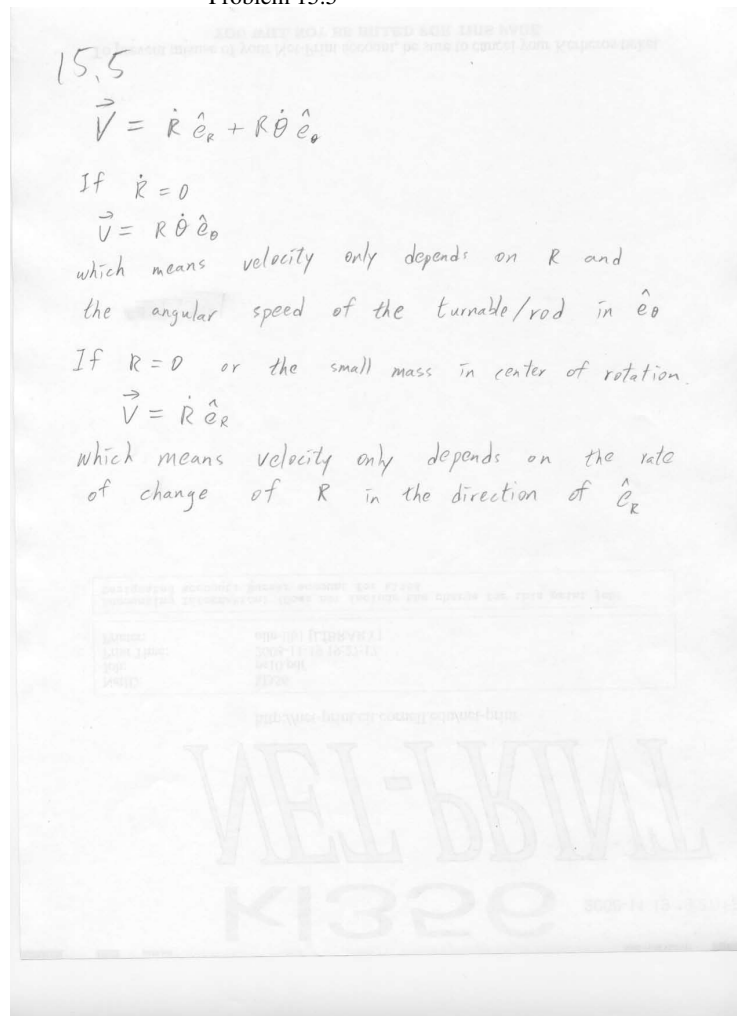 Problem 15.5
15.5
V⃗ = Ṙ ê_R + Rθ̇ ê_θ
If Ṙ = 0
v⃗ = R θ̇ ê_θ
which means velocity only depends on R and
the angular speed of the turnable/rod in ê_θ
If R = 0 or the small mass in center of rotation.
V⃗ = Ṙ ê_R
which means velocity only depends on the rate
of change of R in the direction of ê_R
NET-PRINT
kl356